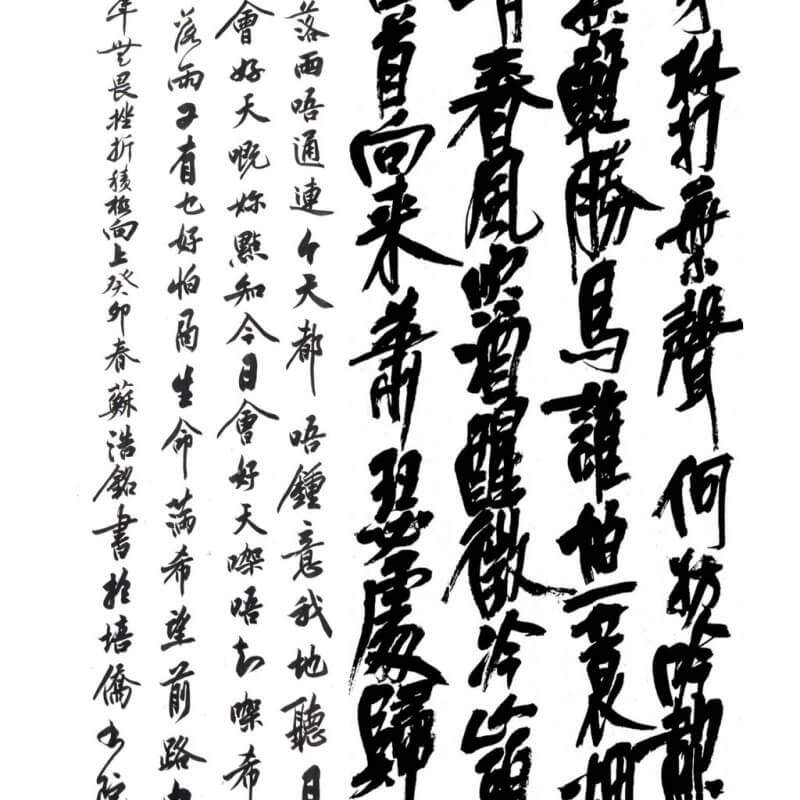 林打葉聲何妨吟
鞋輕勝馬誰怕一蓑煙
春風吹酒醒微冷山頭
首向來蕭瑟處歸
落雨唔通連个天都唔鍾意我地聽日
會好天嘅妳點知今日會好天㗎唔知㗎希
落雨又有乜好怕生命滿希望前路
年無畏挫折積極向上癸卯春蘇浩銘書於培僑書院